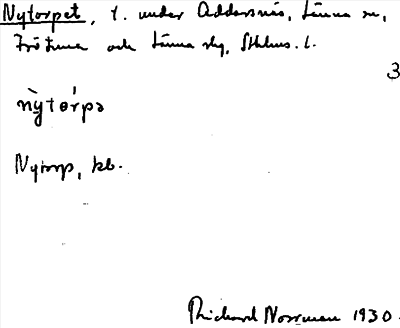 Nytorpet, t. under Addarsnäs, Länna sn,
Frötuna och Länna skg, Sthlms. l.
3
nỳtǿrpə
Nytorp, kb.
Richard Norrman 1930.